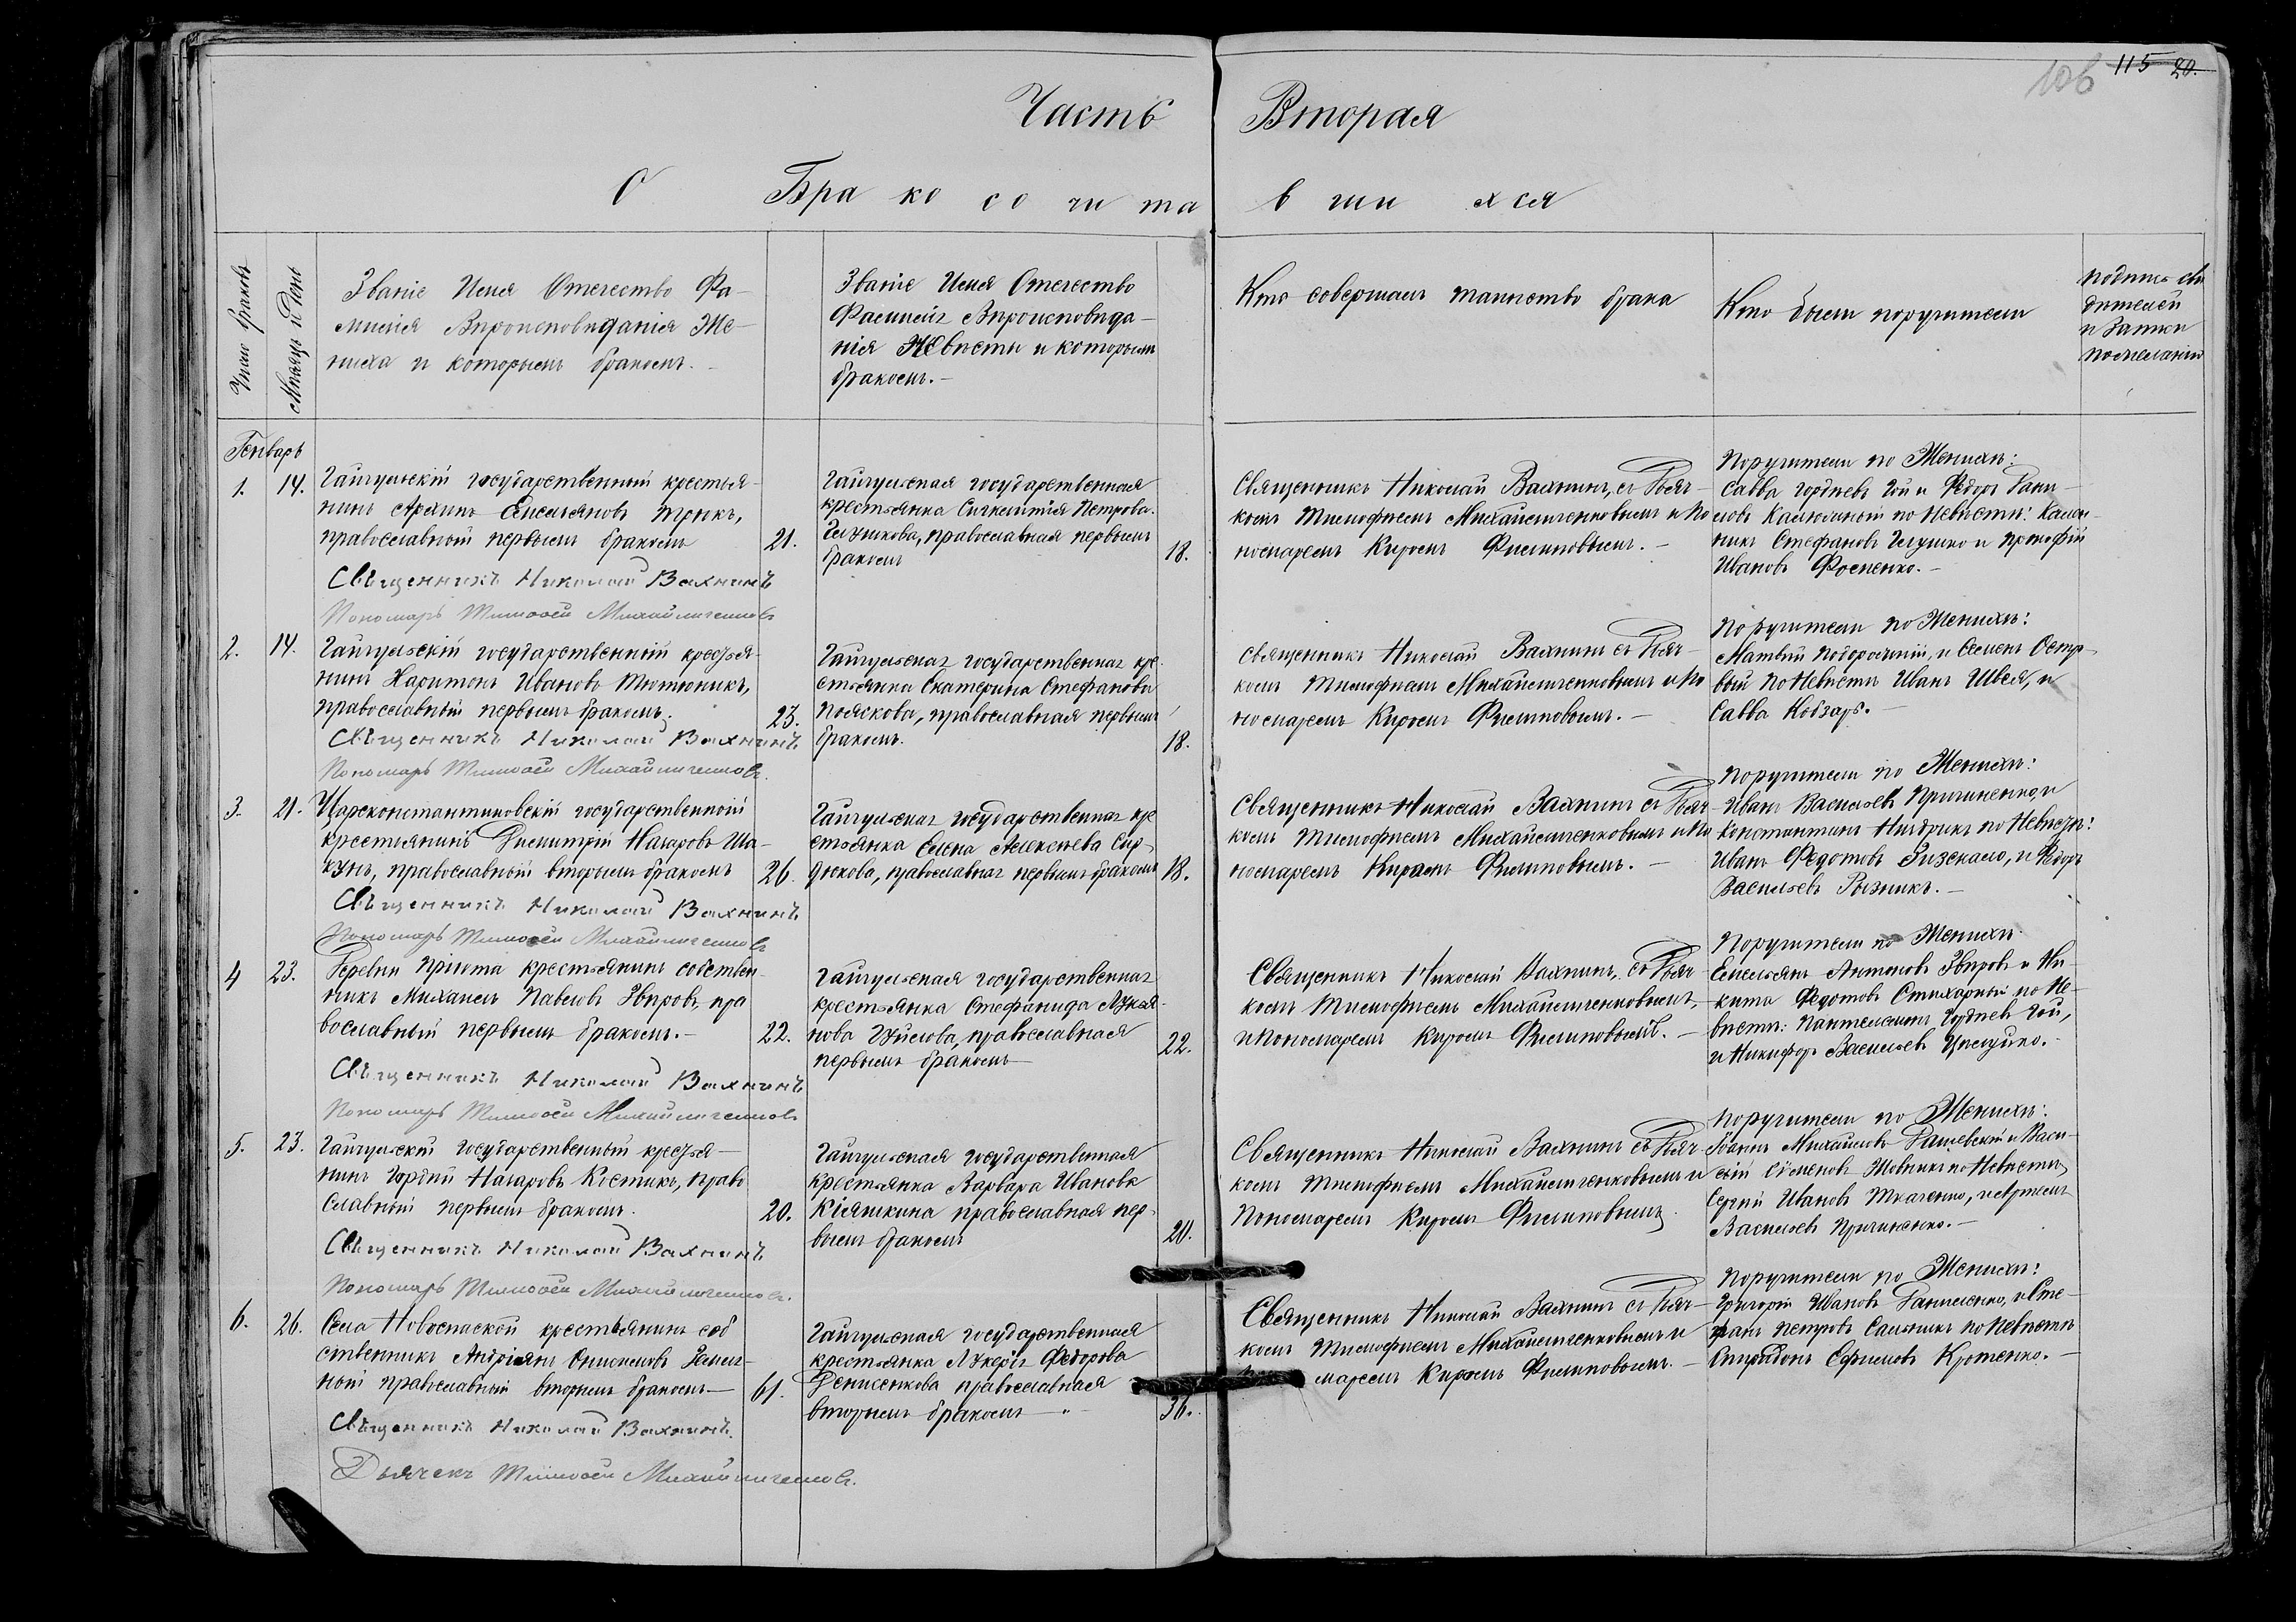 106 115 20.
Часть Вторая
О Бракосочитавшихся
Число браковъ
Мѣсяцъ и День
Званіе Имя Отечество Фа-
милія Вѣроисповѣданія Же-
ниха и которымъ бракомъ.-
Званіе Имя Отечество
Фамиліи Вѣроисповѣда-
нія Невѣсты и которымъ
бракомъ.-
Кто совершалъ таинство брака
Кто былъ поручители
подпись сви
дѣтелей
и записи
по желанію
Генварь
1.
14.
Гайчульскій государственный крестья-
нинъ Архипъ Емельяновъ Трюкъ,
православный первымъ бракомъ
21.
Священникъ Николай Вахнинъ
Пономарь Тимоѳей Михайличенковъ
Гайчульская государственная
крестьянка Синклитія Петрова
православная первымъ
бракомъ
18.
Священникъ Николай Вахнинъ, съ Дьяч-
комъ Тимофѣемъ Михайличенковымъ и По
номаремъ Киромъ Филиповымъ.-
Поручители по Женихѣ:
Савва Гордѣевъ Гой и Федоръ Дани-
ловъ Калюжный по Невѣстѣ:
никъ Стефановъ Глушко и Прокофій
Ивановъ Фоменко.-
2.
14.
Гайчульскій государственній крестья-
нинъ Харитонъ Ивановъ Тютюникъ,
православный первымъ бракомъ.
23.
Священникъ Николай Вахнинъ
Пономарь Тимоѳей Михайличенковъ.
Гайчульская государственная кре-
стьянка Екатерина Стефанова
Пояскова, православная первымъ
бракомъ.
18.
Священникъ Николай Вахнинъ съ Дьяч-
комъ Тимофѣемъ Михайличенковымъ и По
номаремъ Киромъ Филиповымъ.-
Поручители по Женихѣ:
Матвѣй Подорожній, и Семенъ Остр-
вый по Невѣстѣ Иванъ Швея, и
Савва Кобзарь.-
3.
21.
Цареконстантиновскій государственной
крестьянинъ Димитрій Назаровъ Ша-
кунъ, православный вторымъ бракомъ
26.
Священникъ Николай Вахнинъ
Пономарь Тимоѳей Михайличенковъ
Гайчульская государственная кре
стьянка Елена Алексѣева Сер-
дюкова, православная первымъ бракомъ
18.
Священникъ Николай Вахнинъ съ Дьяч
комъ Тимофѣемъ Михайличенковымъ и По
номаремъ Киромъ Филиповымъ.-
Поручители по Женихѣ:
Иванъ Васильевъ Причиненко, и
Константинъ по Невѣстѣ:
Иванъ Федотовъ и Федоръ
Васильевъ Рызникъ.-
4
23.
Деревни Пріюта крестьянинъ собствен-
никъ Михаилъ Павловъ Звѣровъ, пра
вославный первымъ бракомъ.-
22.
Священникъ Николай Вахнинъ
Пономарь Тимоѳей Михайличенковъ
Гайчульская государственная
крестьянка Стефанида Лукья-
нова православная
первымъ бракомъ
22.
Священникъ Николай Вахнинъ, съ Дьяч-
комъ Тимофѣемъ Михайличенковымъ,
и Пономаремъ Киромъ Филиповымъ.-
Поручители по Женихѣ.
Емельянъ Антоновъ Звѣровъ и Ни-
кита Федотовъ Стихарный по Не-
вѣстѣ: Пантелемонъ Гордѣевъ Гой,
и Никифоръ Васильевъ
5.
23.
Гайчульскій государственный крестья-
нинъ Гордѣй Назаровъ Костикъ, право
славный первымъ бракомъ.
20.
Священникъ Николай Вахнинъ
Пономарь Тимоѳей Михайличенковъ.
Гайчульская государственная
крестьянка Варвара Иванова
Кіяшкина православная пер-
вымъ бракомъ
20.
Священникъ Николай Вахнинъ съ Дьяч
комъ Тимофѣемъ Михайличенковымъ и
Пономаремъ Киромъ Филиповымъ
Поручители по Женихѣ:
Іоаннъ Михайловъ и Васи-
лій Семеновъ по Невѣстѣ
Сергій Ивановъ Ткаченко, и Артемъ
Васильевъ Причиненко.-
6.
26.
Села Новоспаской крестьянинъ соб
ственникъ Андріянъ Онисимовъ
ный православный вторымъ бракомъ-
61.
Священникъ Николай Вахнинъ.
Дьячекъ Тимоѳей Михайличенковъ.
Гайчульская государственная
крестьянка Лукерія Федорова
Денисенкова православная
вторымъ бракомъ-
36.
Священникъ Николай Вахнинъ съ Дьяч-
комъ Тимофѣемъ Михайличенковымъ и
маремъ Киромъ Филиповымъ.-
Поручители по Женихѣ:
Григорій Ивановъ Данильченко, и Сте-
фанъ Петровъ Сальникъ по Невѣстѣ
Спиридонъ Ефимовъ Кротенко.-